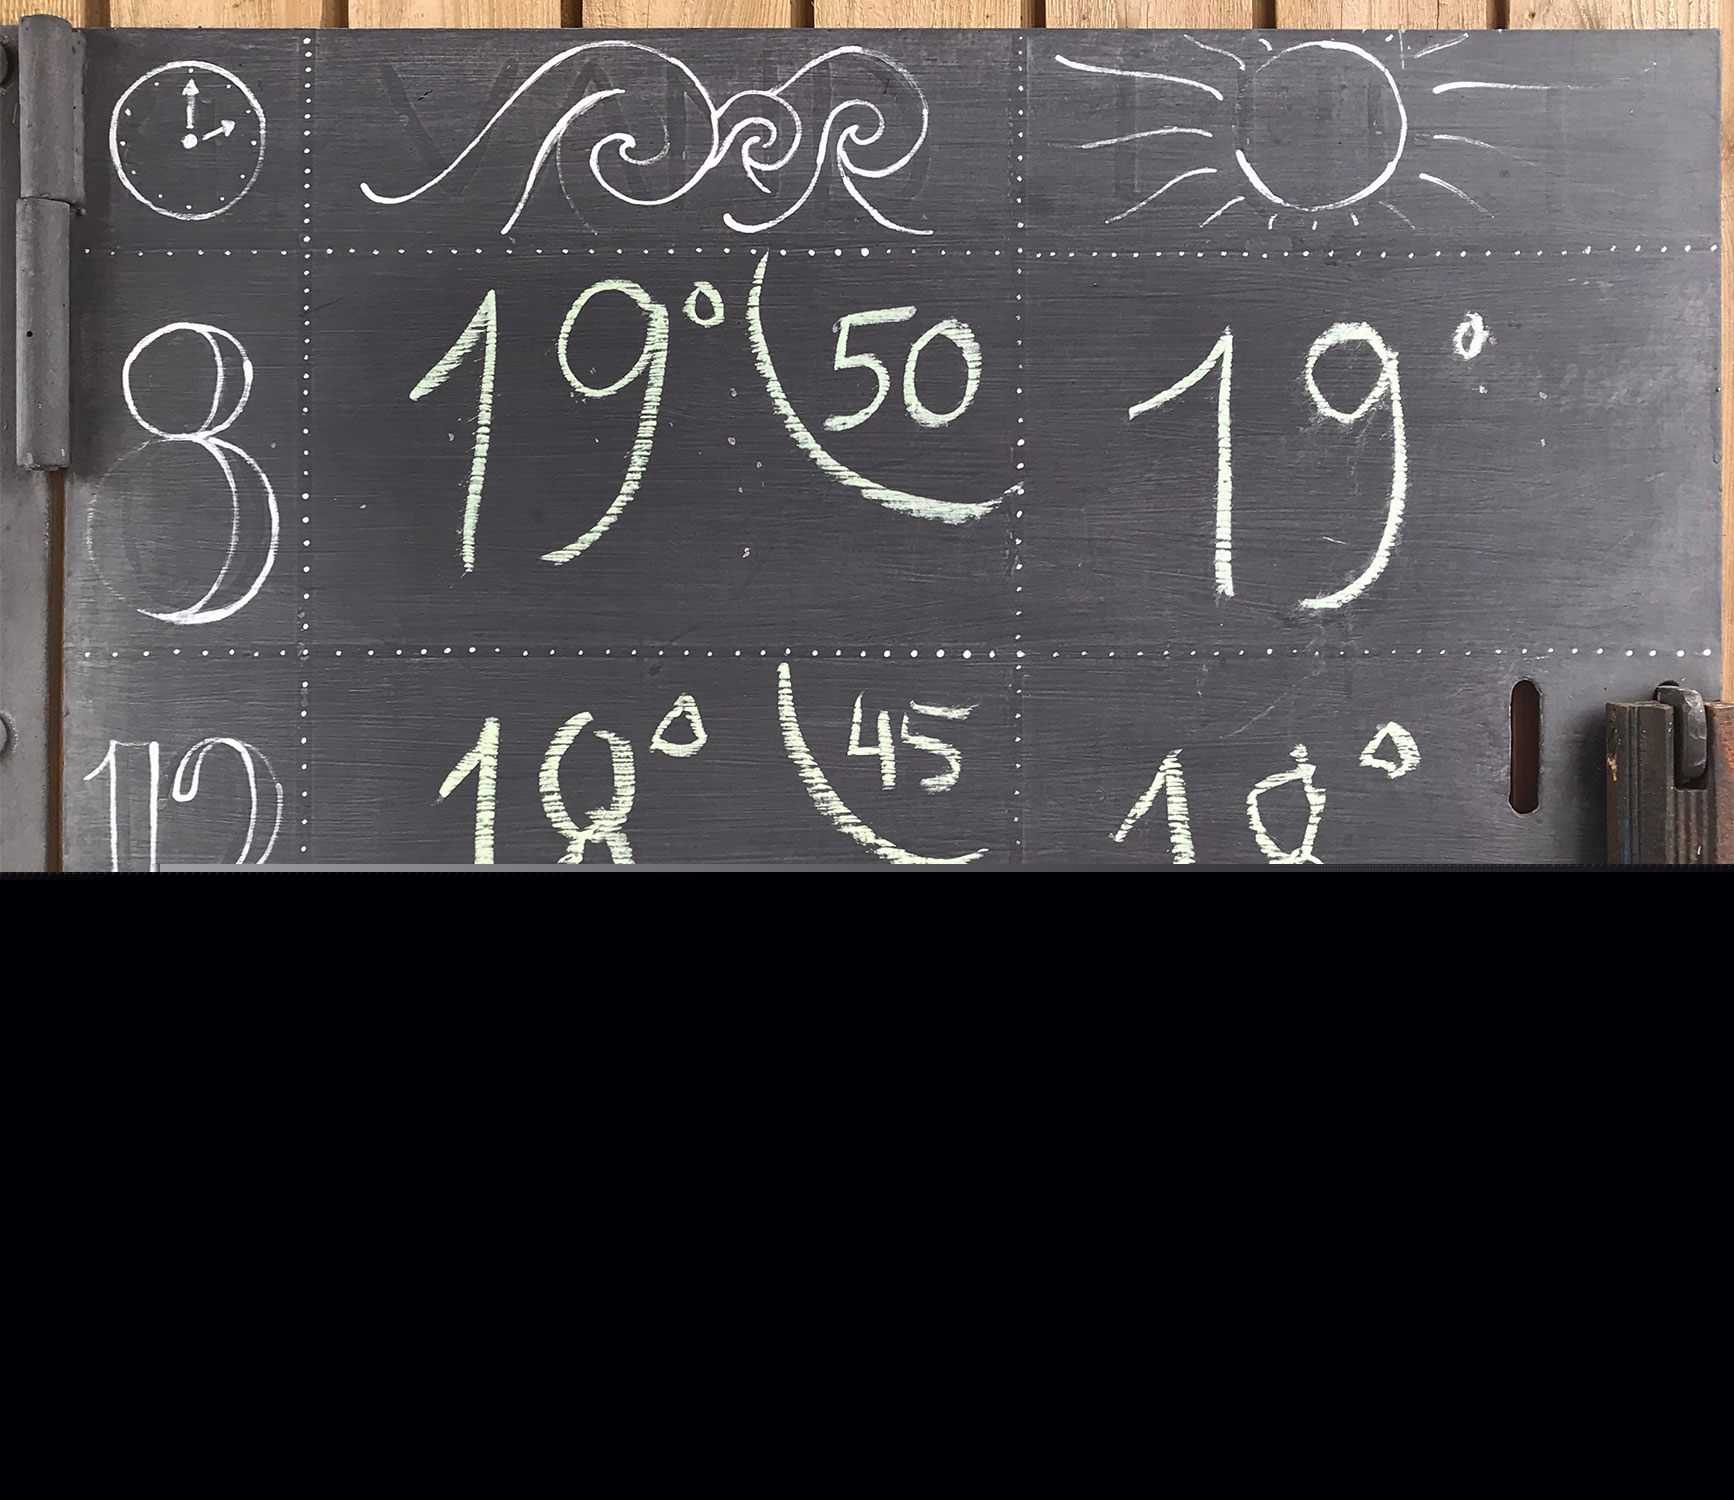 8 19° 50 19°
12 18° 45 18°